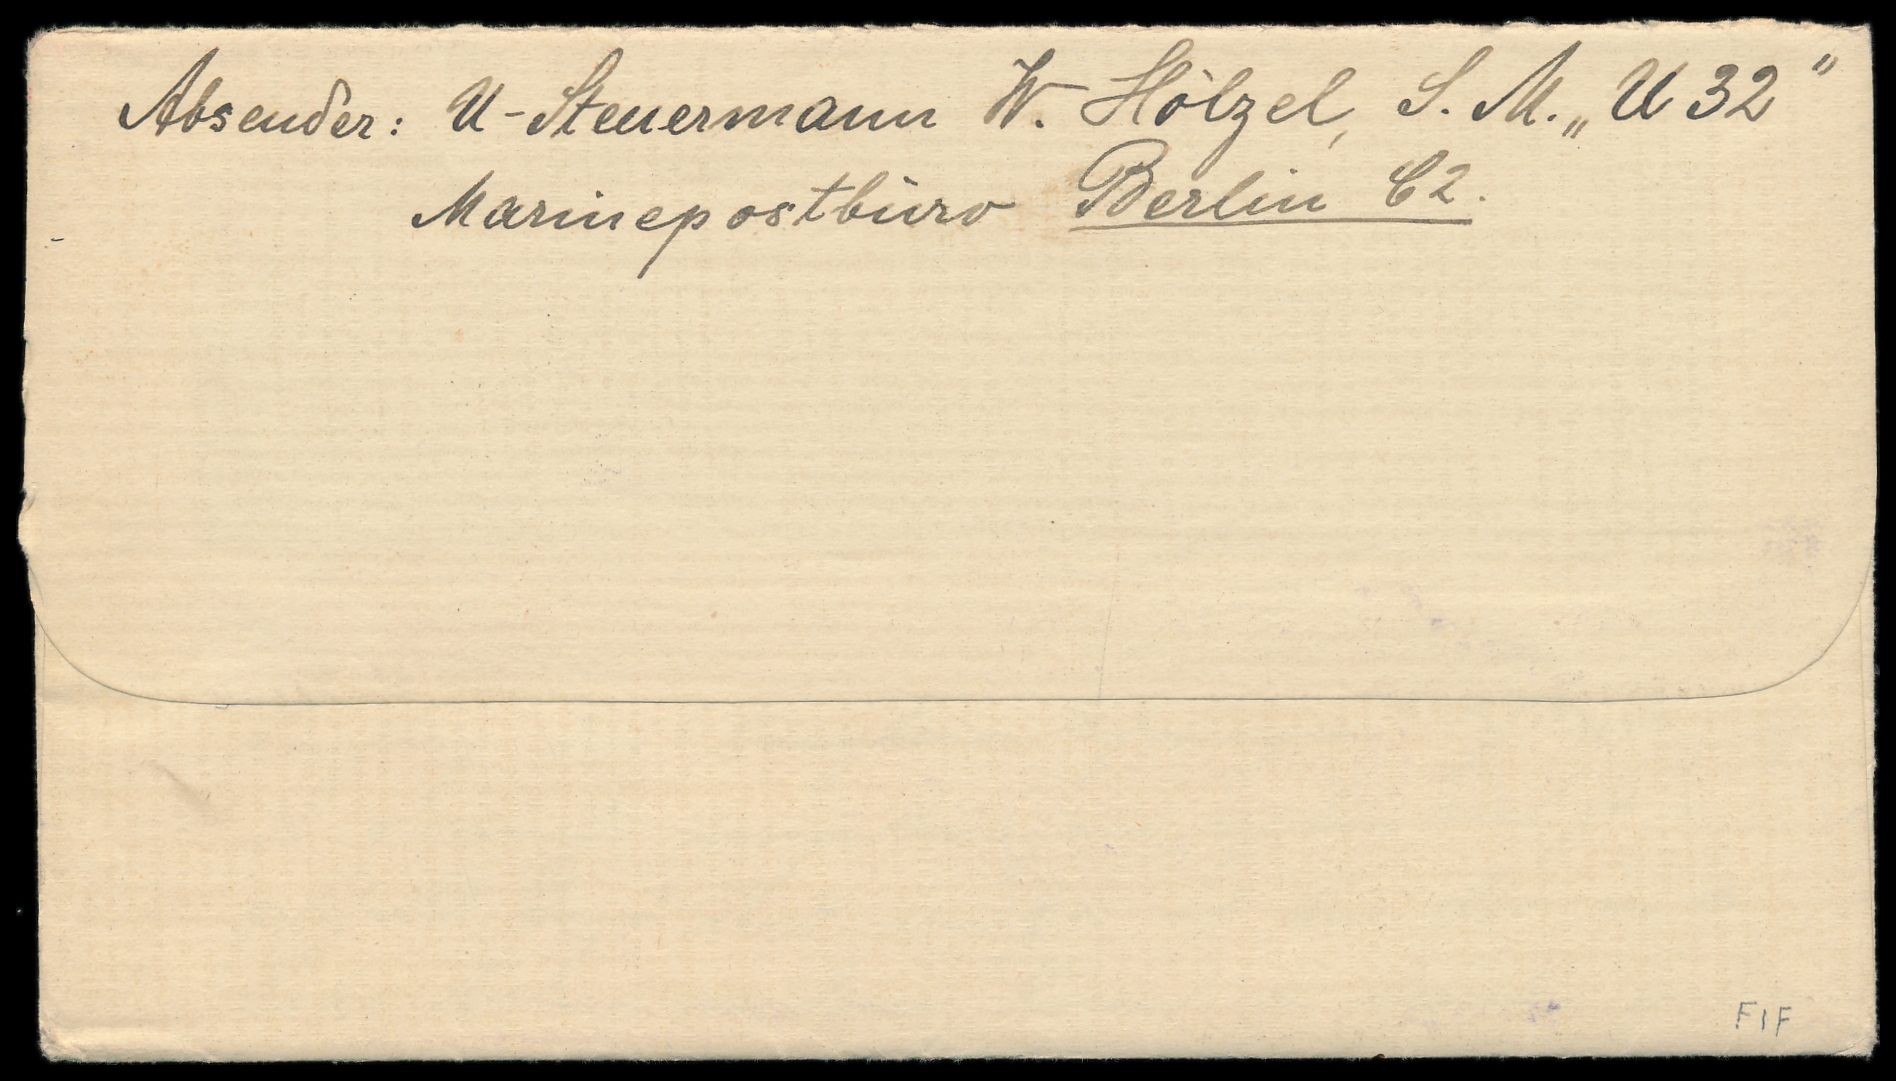 Absender: U-Steuermann W. Hölzel, S. M. „U 32"
Marinepostbüro Berlin C2.
FIF